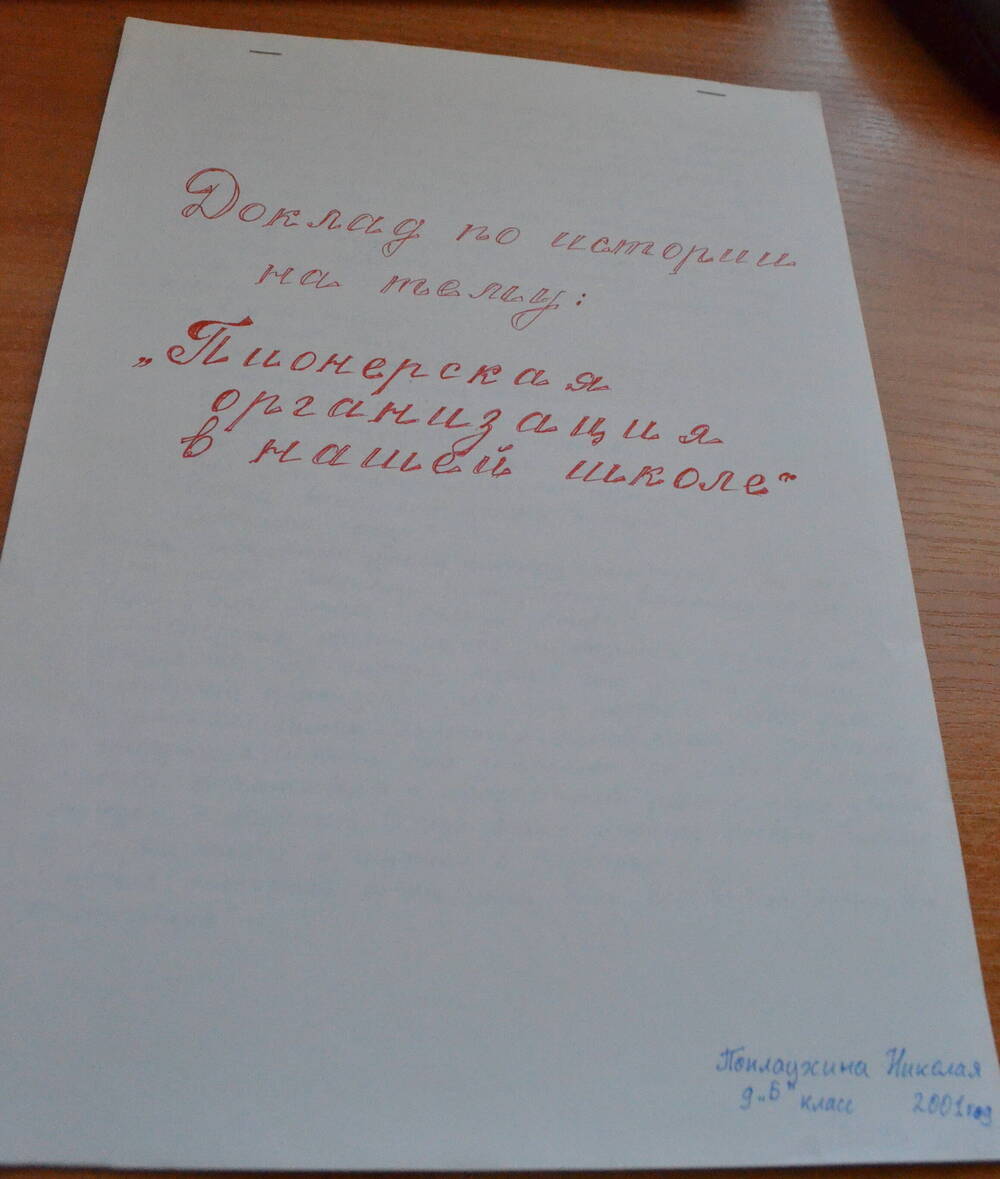 Доклад по истории
на тему:
„Пионерская
организация
в нашей школе“
Поплаухина Николая
9 „Б“ класс 2001 год